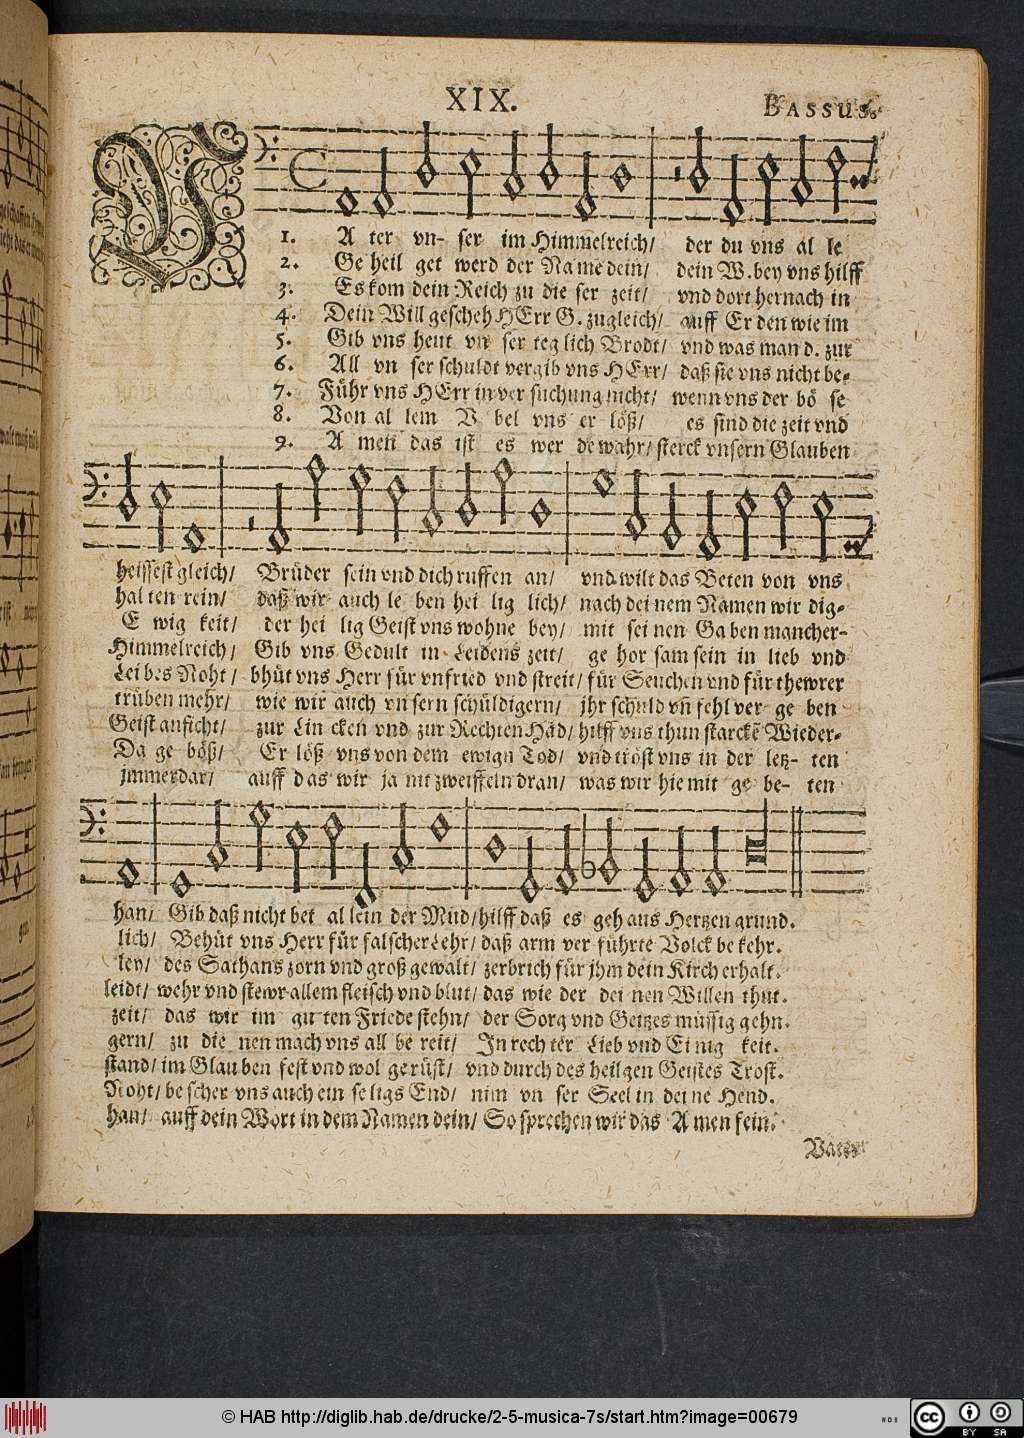 XIX.
BASSUS.
V
1. A ter vn- ser im Himmelreich/ der du vns al le
2. Ge heil get werd der Na me dein/ dein W. bey vns hilff
3. Es kom dein Reich zu die ser zeit/ vnd dort hernach in
4. Dein Will gescheh HErr G. zugleich/ auff Er den wie im
5. Gib vns heut vn ser teg lich Brodt/ vnd was man d. zur
6. All vn ser schuldt vergib vns HErr/ daß sie vns nicht be-
7. Führ vns HErr in ver suchung nicht/ wenn vns der bö se
8. Von al lem V bel vns er löß/ es sind die zeit vnd
9. A men das ist es wer de wahr/ sterck vnsern Glauben
heissest gleich/ Brüder sein vnd dich ruffen an/ vnd wilt das Beten von vns
hal ten rein/ daß wir auch le ben hei lig lich/ nach dei nem Namen wir dig-
E wig keit/ der hei lig Geist vns wohne bey/ mit sei nen Ga ben mancher-
Himmelreich/ Gib vns Gedult in Leidens zeit/ ge hor sam sein in lieb vnd
Lei bes Noht/ bhüt vns Herr für vnfried vnd streit/ für Seuchen vnd für thewrer
trüben mehr/ wie wir auch vn sern schüldigern/ jhr schuld vñ fehl ver ge ben
Geist anficht/ zur Lin cken vnd zur Rechten Häd/ hilff vns thun starckẽ Wieder-
Da ge böß/ Er löß vns von dem ewign Tod/ vnd tröst vns in der letz- ten
jmmerdar/ auff das wir ja nit zweiffeln dran/ was wir hie mit ge be- ten
han/ Gib daß nicht bet al lein der Mud/ hilff daß es geh aus Hertzen grund.
lich/ Behüt vns Herr für falscher Lehr/ daß arm ver führte Volck be kehr.
ley/ des Sathans zorn vnd groß gewalt/ zerbrich für jhm dein Kirch erhalt.
leidt/ wehr vnd stewr allem fleisch vnd blut/ das wie der dei nen Willen thut.
zeit/ das wir im gu ten Friede stehn/ der Sorg vnd Geitzes müssig gehn.
gern/ zu die nen mach vns all be reit/ In rech ter Lieb vnd Ei nig keit.
stand/ im Glau ben fest vnd wol gerüst/ vnd durch des heilgen Geistes Trost.
Noht/ be scher vns auch ein se ligs End/ nim vn ser Seel in dei ne Hend.
han/ auff dein Wort in dem Namen dein/ So sprechen wir das A men fein.
Vater
© HAB http://diglib.hab.de/drucke/2-5-musica-7s/start.htm?image=00679
cc BY SA